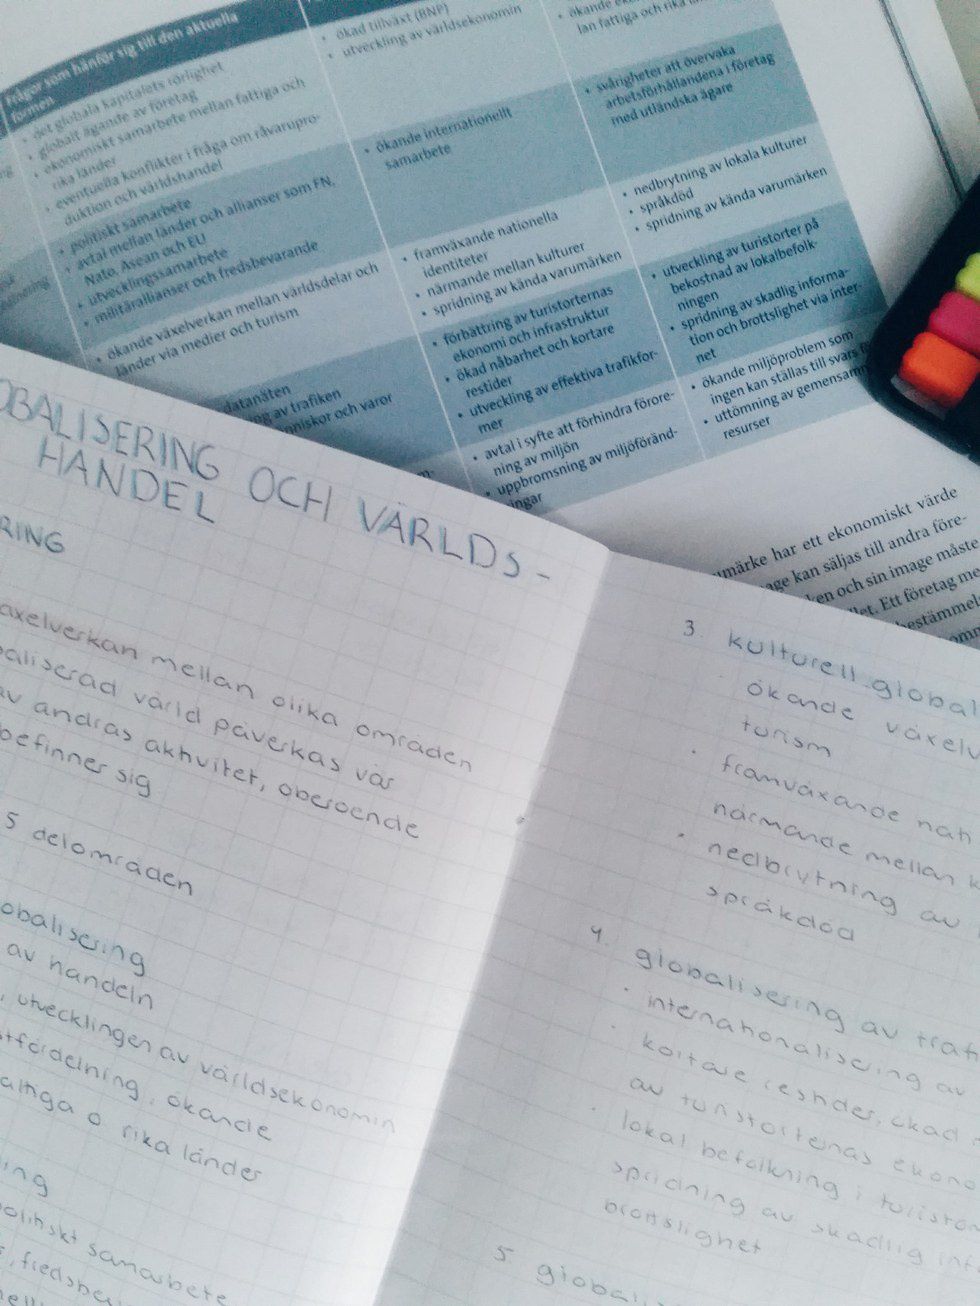 Frågor som hänför sig till den aktuella
formen
• det globala kapitalets rörlighet
• globalt ägande av företag
• ekonomiskt samarbete mellan fattiga och
rika länder
• eventuella konflikter i fråga om råvarupro-
duktion och världshandel
• ökad tillväxt (BNP)
• utveckling av världsekonomin
lan fattiga och rika
• svårigheter att övervaka
arbetsförhållandena i företag
med utländska ägare
• politiskt samarbete
• avtal mellan länder och allianser som FN,
Nato, Asean och EU
• utvecklingssamarbete
• militärallianser och fredsbevarande
• ökande internationellt
samarbete
• nedbrytning av lokala kulturer
• språkdöd
• spridning av kända varumärken
• ökande växelverkan mellan världsdelar och
länder via medier och turism
• framväxande nationella
identiteter
• närmande mellan kulturer
• spridning av kända varumärken
• utveckling av turistorter på
bekostnad av lokalbefolk-
ningen
• spridning av skadlig informa-
tion och brottslighet via inter-
net
datanäten
av trafiken
och varor
• förbättring av turistorternas
ekonomi och infrastruktur
• ökad nåbarhet och kortare
restider
• utveckling av effektiva trafikfor-
mer
• ökande miljöproblem som
ingen kan ställas till svars
• uttömning av
resurser
• avtal i syfte att förhindra förore-
ning av miljön
• uppbromsning av miljöföränd-
ingar
har ett ekonomiskt värde
kan säljas till andra före-
och sin image måste
Ett företag
OBALISERING OCH VÄRLDS-
HANDEL
RING
äxelverkan mellan olika områden
baliserad värld påverkas vår
av andras aktivitet, oberoende
befinner sig
5 delområden
obalisering
av handeln
, utvecklingen av världsekonomin
stfördelning, ökande
attiga o rika länder
ing
politiskt samarbete
3. kulturell global
ökande växelv
turism
• framväxande nati
närmande mellan k
• nedbrytning av
språkdöd
4. globalisering av traf
• internationalisering av
• kortare restider, ökad
av turistorternas ekono
• lokal befolkning i turistor
spridning av skadlig inf
brottslighet
5 globali